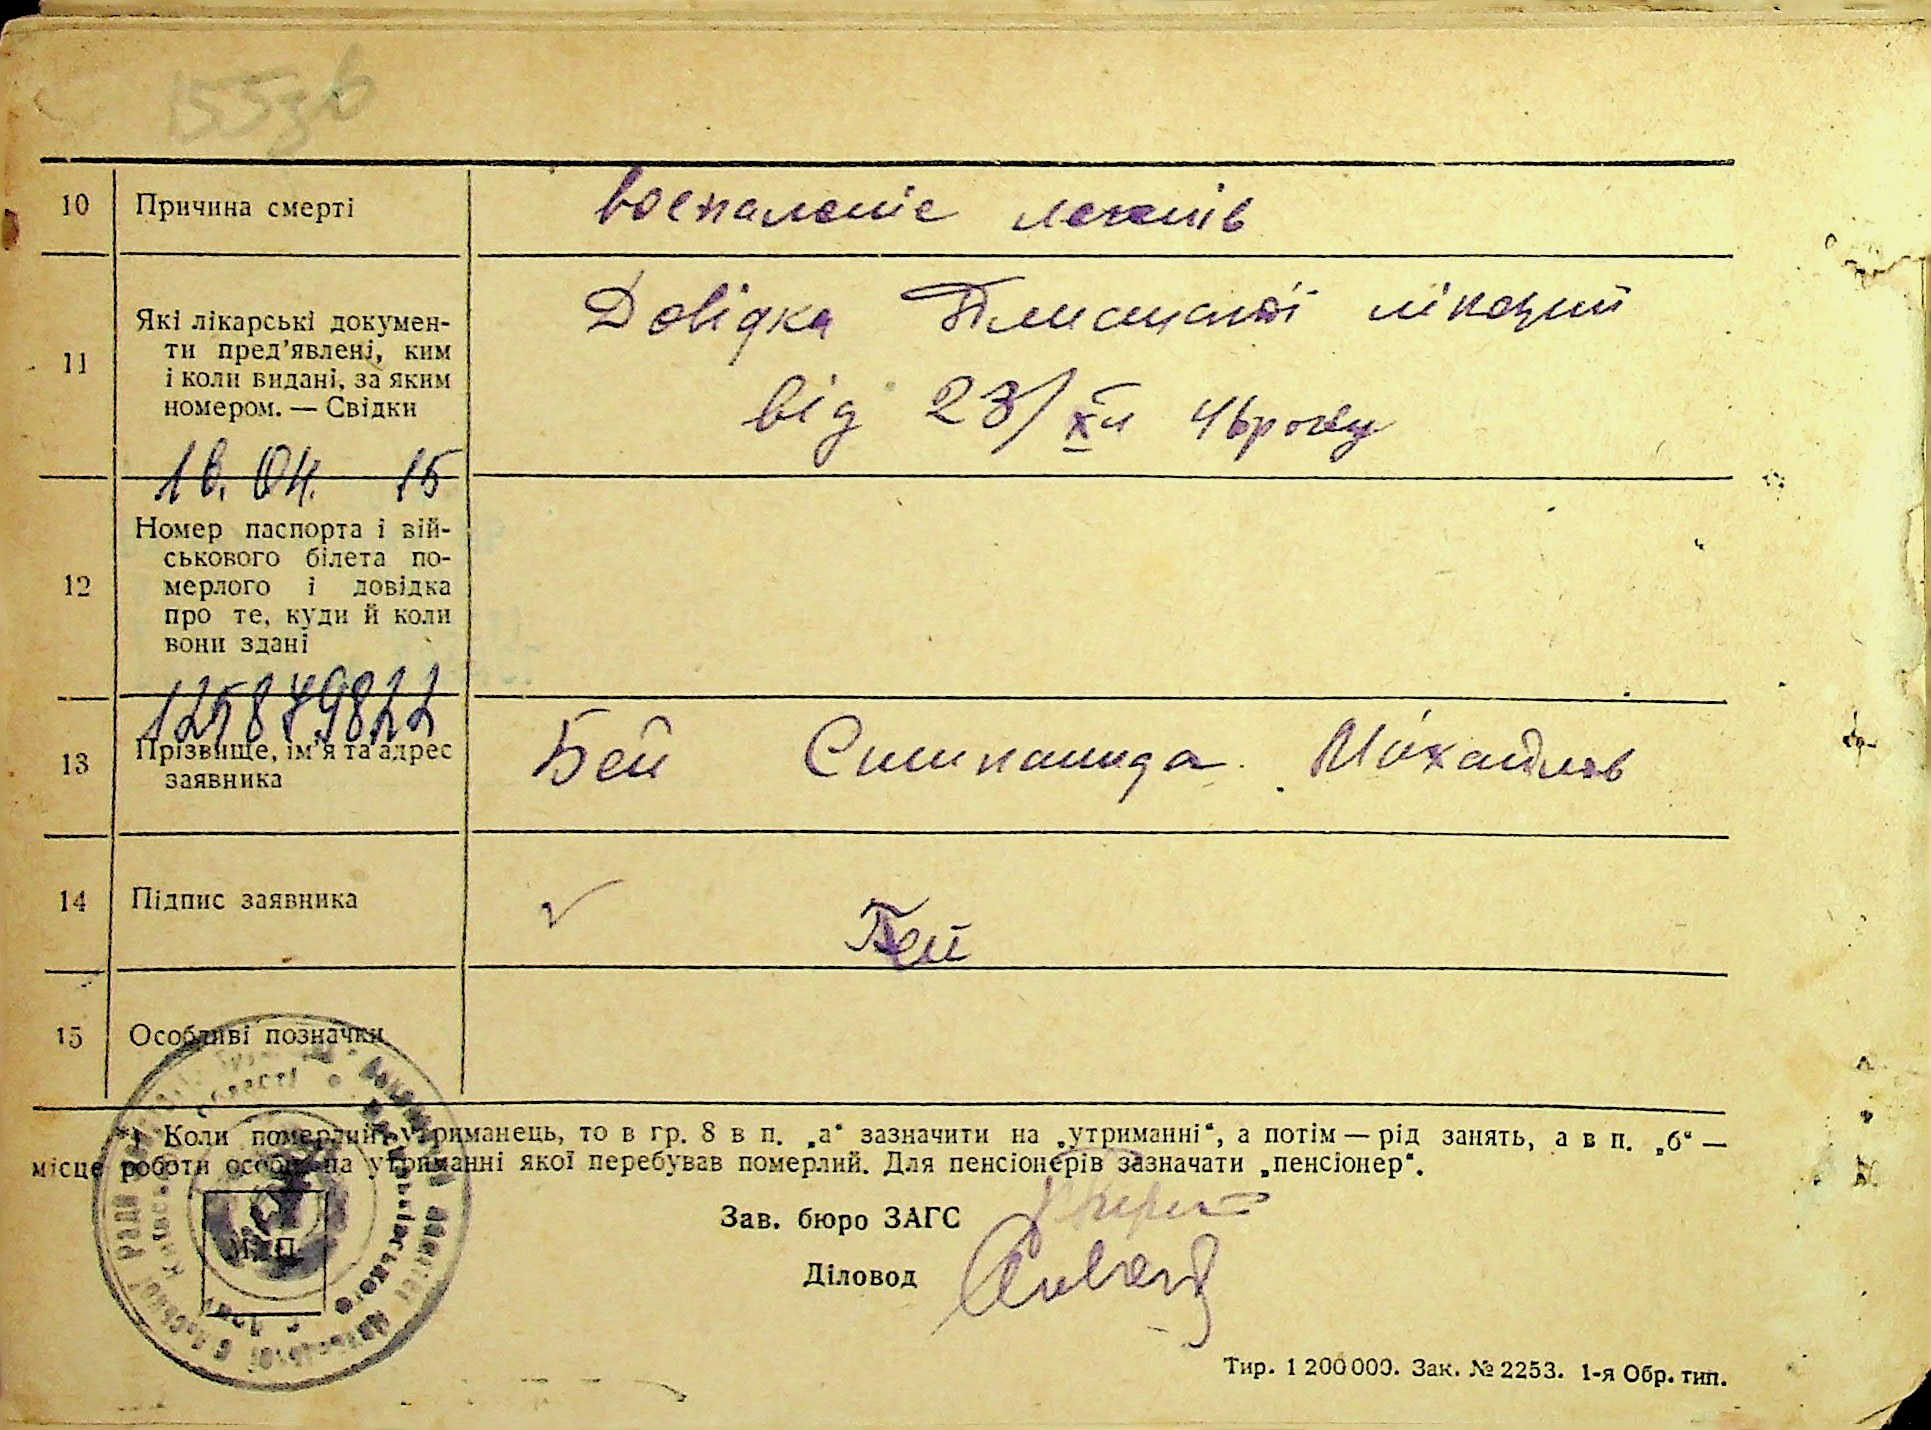 10 Причина смерті воспаленіе легенів
11 Які лікарські докумен-
ти пред’явлені, ким
і коли видані, за яким
номером. — Свідки
Довідка лікарні
від 23/XII 46 року
16. 04. 15
12 Номер паспорта і вій-
ськового білета по-
мерлого і довідка
про те, куди й коли
вони здані
125879822
13 Прізвище, ім’я та адрес
заявника
Бей Михайлов
14 Підпис заявника
Бей
15 Особливі позначки
*) Коли померлий утриманець, то в гр. 8 в п. „а“ зазначити на „утриманні“, а потім — рід занять, а в п. „б“ —
місце роботи особи, на утриманні якої перебував померлий. Для пенсіонерів зазначати „пенсіонер“.
Зав. бюро ЗАГС
Діловод
М. П.
Тир. 1 200 000. Зак. № 2253. 1-я Обр. тип.